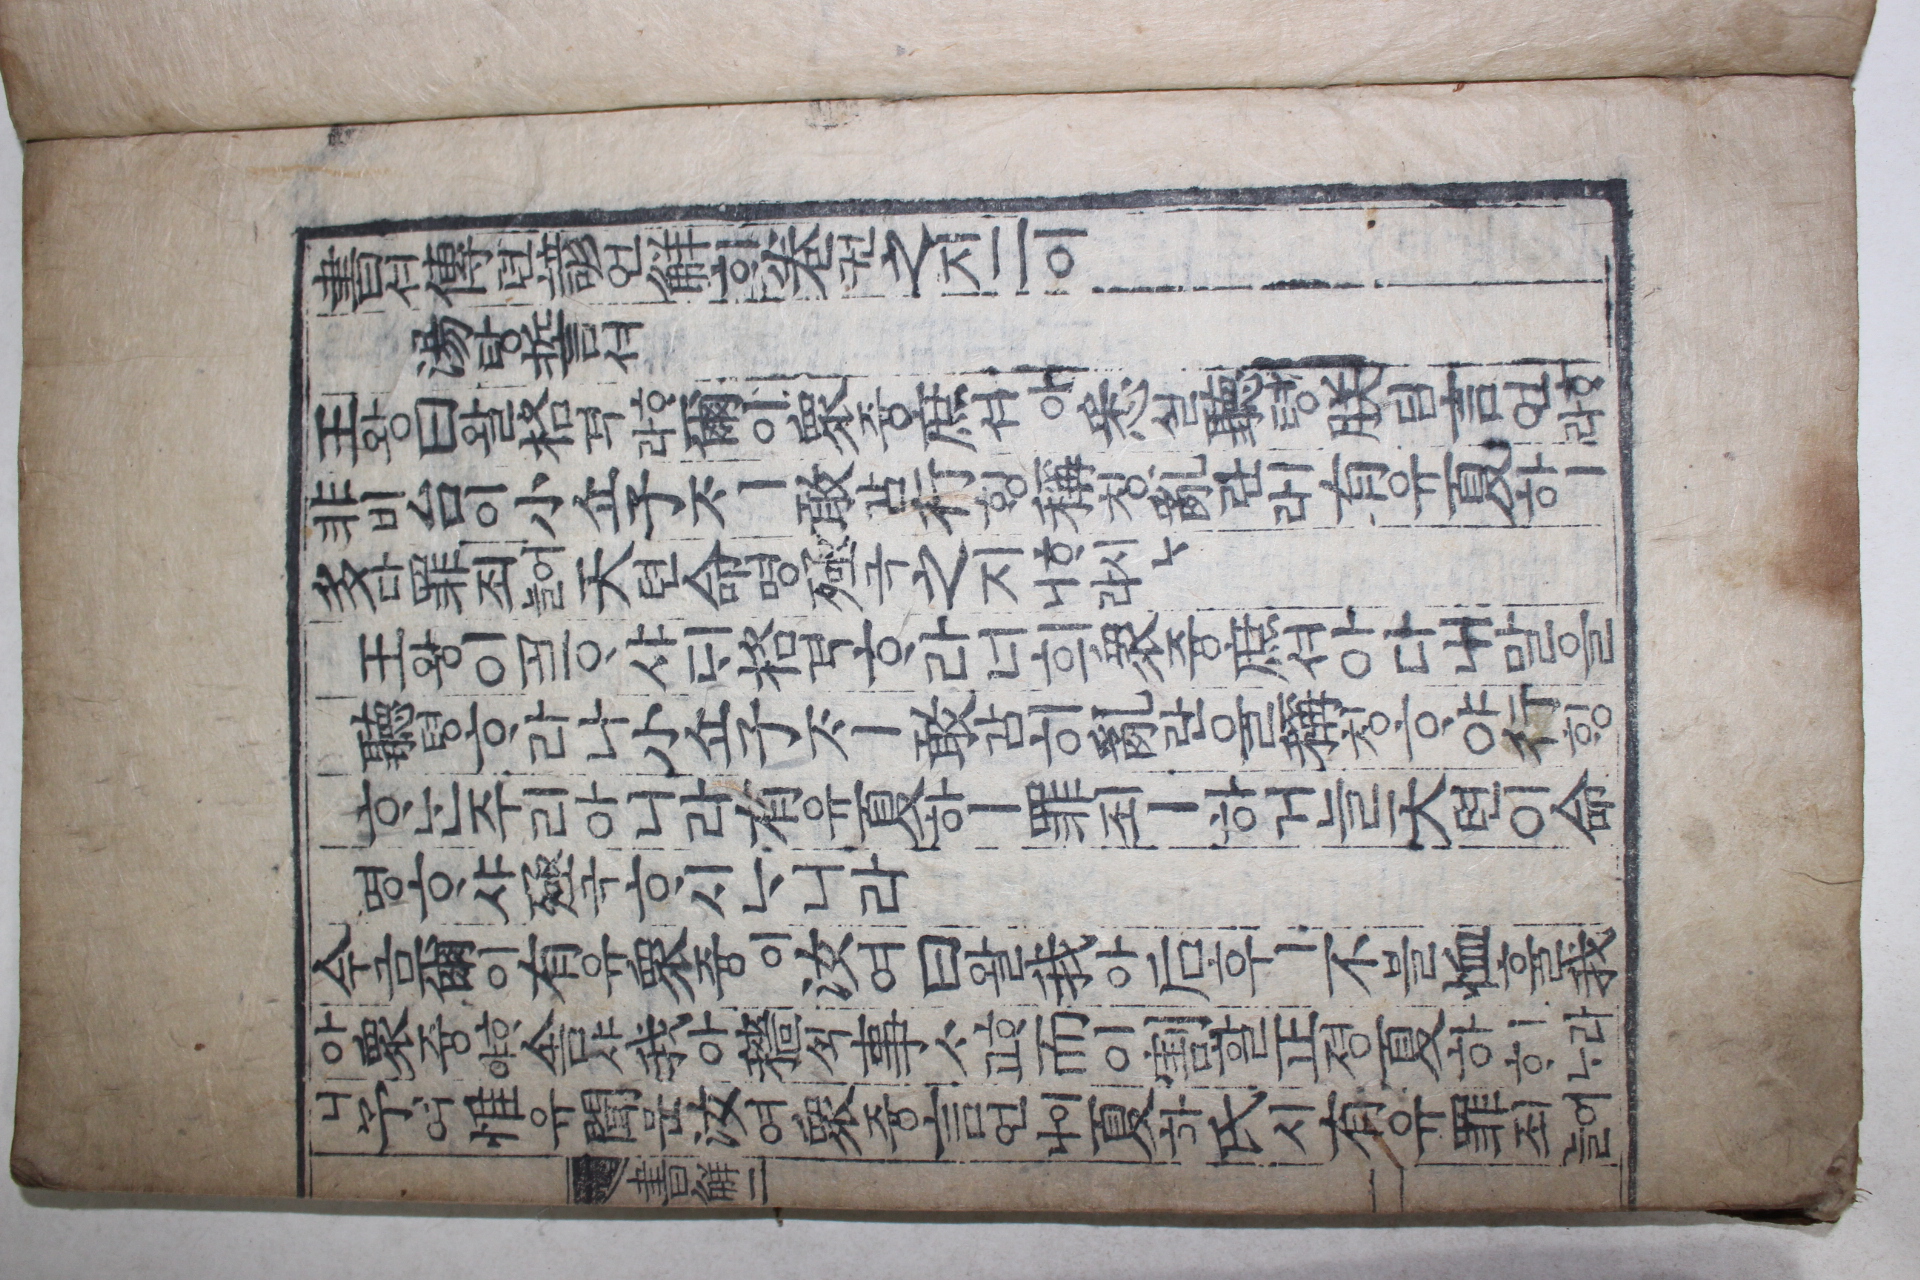 書셔傳뎐諺언解ᄒᆡ卷권之지二이
湯탕誓셔
王왕曰왈格격ᄒᆞ라爾이衆즁庶셔아悉실聽텽朕딤言언ᄒᆞ라
非비台이小쇼子ᄌᆞㅣ敢감行ᄒᆡᆼ稱칭亂란이라有유夏하ㅣ
多다罪죄어늘天텬命명殛극之지ᄒᆞ시ᄂᆞ니라
王왕이ᄀᆞᆯᄋᆞ샤ᄃᆡ格격ᄒᆞ라너희衆즁庶셔아다내말을
聽텽ᄒᆞ라나小쇼子ᄌᆞㅣ敢감히亂란을稱칭ᄒᆞ야行ᄒᆡᆼ
ᄒᆞᄂᆞᆫ주리아니라有유夏하ㅣ罪죄ㅣ하거늘天텬이命
명ᄒᆞ샤殛극ᄒᆞ시ᄂᆞ니라
今금爾이有유衆즁이汝여曰왈我아后후ㅣ不블恤휼我
아衆즁ᄒᆞ야舍샤我아穡ᄉᆡᆨ事ᄉᆞᄒᆞ고而이割할正졍夏하ㅣ라ᄒᆞᄂᆞ
니予여惟유聞문汝여衆즁言언이나夏하氏시有유罪죄어늘
書解二
一